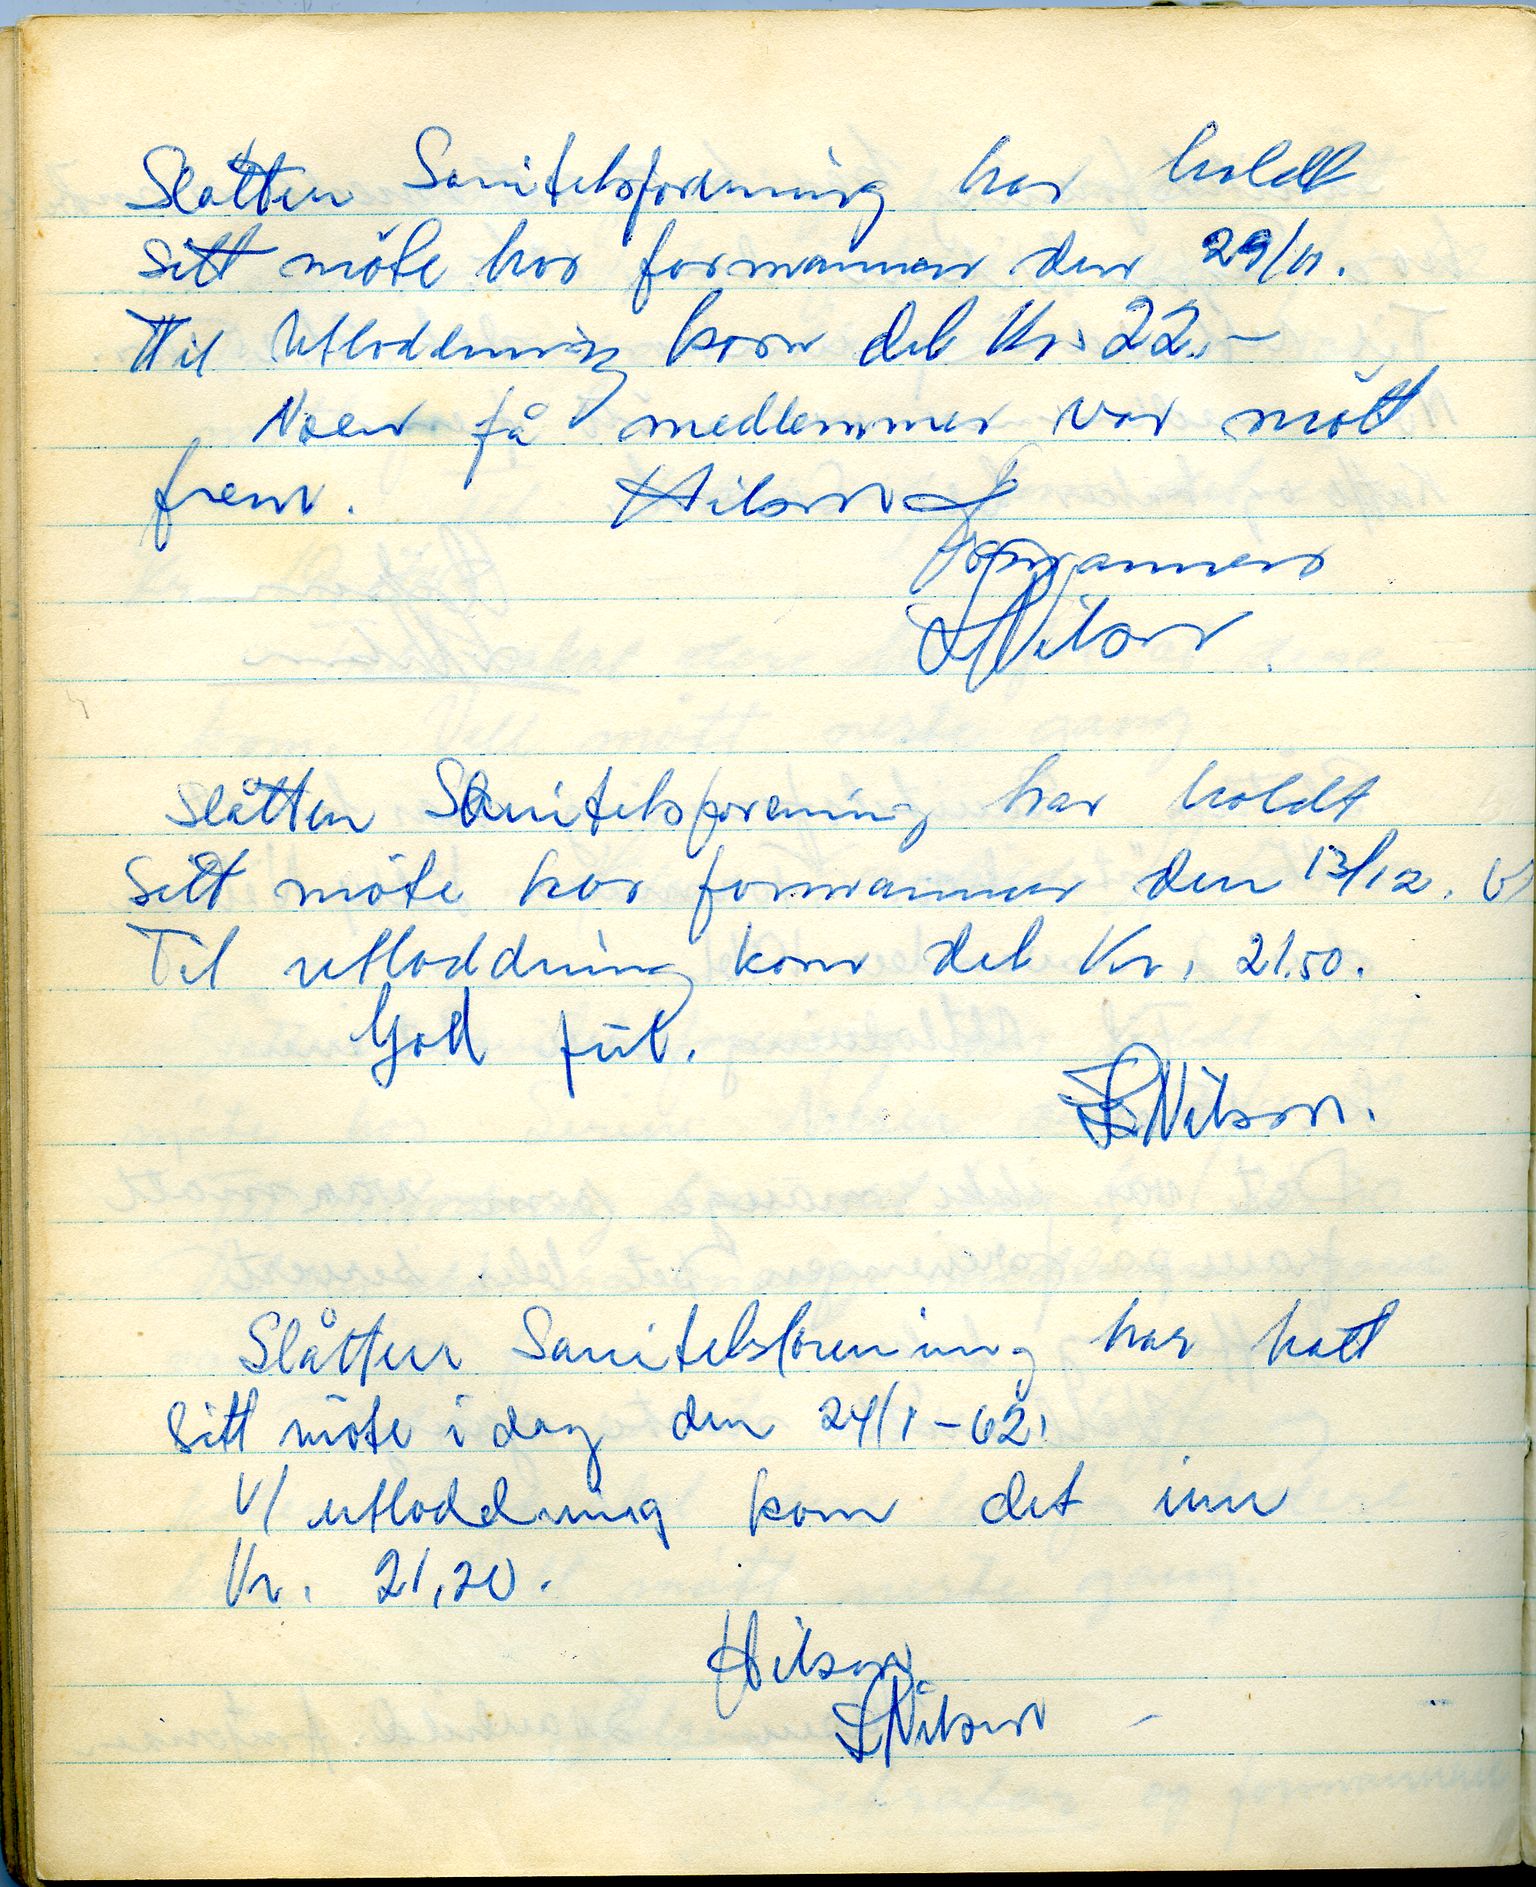 Slåtten Sanitetsforening har holdt
sitt möte hos formannen den 29/11.
Til Utloddning kom det Kr. 22.-
Noen få medlemmer var mött
frem. Hilsen
formannen
L Nilsen
Slåtten Sanitetsforening har holdt
Sitt möte hos formannen den 13/12.
Til utloddning kom det Kr. 21.50.
God jul.
L Nilsen.
Slåtten Sanitetsforening har hatt
sitt möte i dag den 24/1-62.
V/ utloddning kom det inn
Kr. 21,20.
Hilsen
L Nilsen